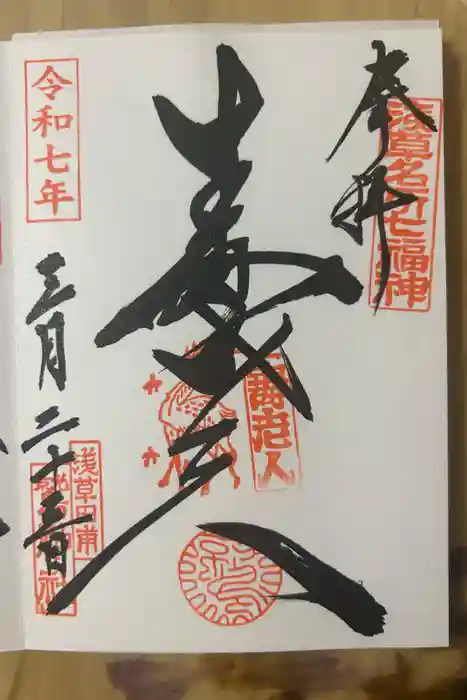 奉拝
浅草名所七福神
寿老人
寿老人
令和七年
三月二十三日
浅草田甫